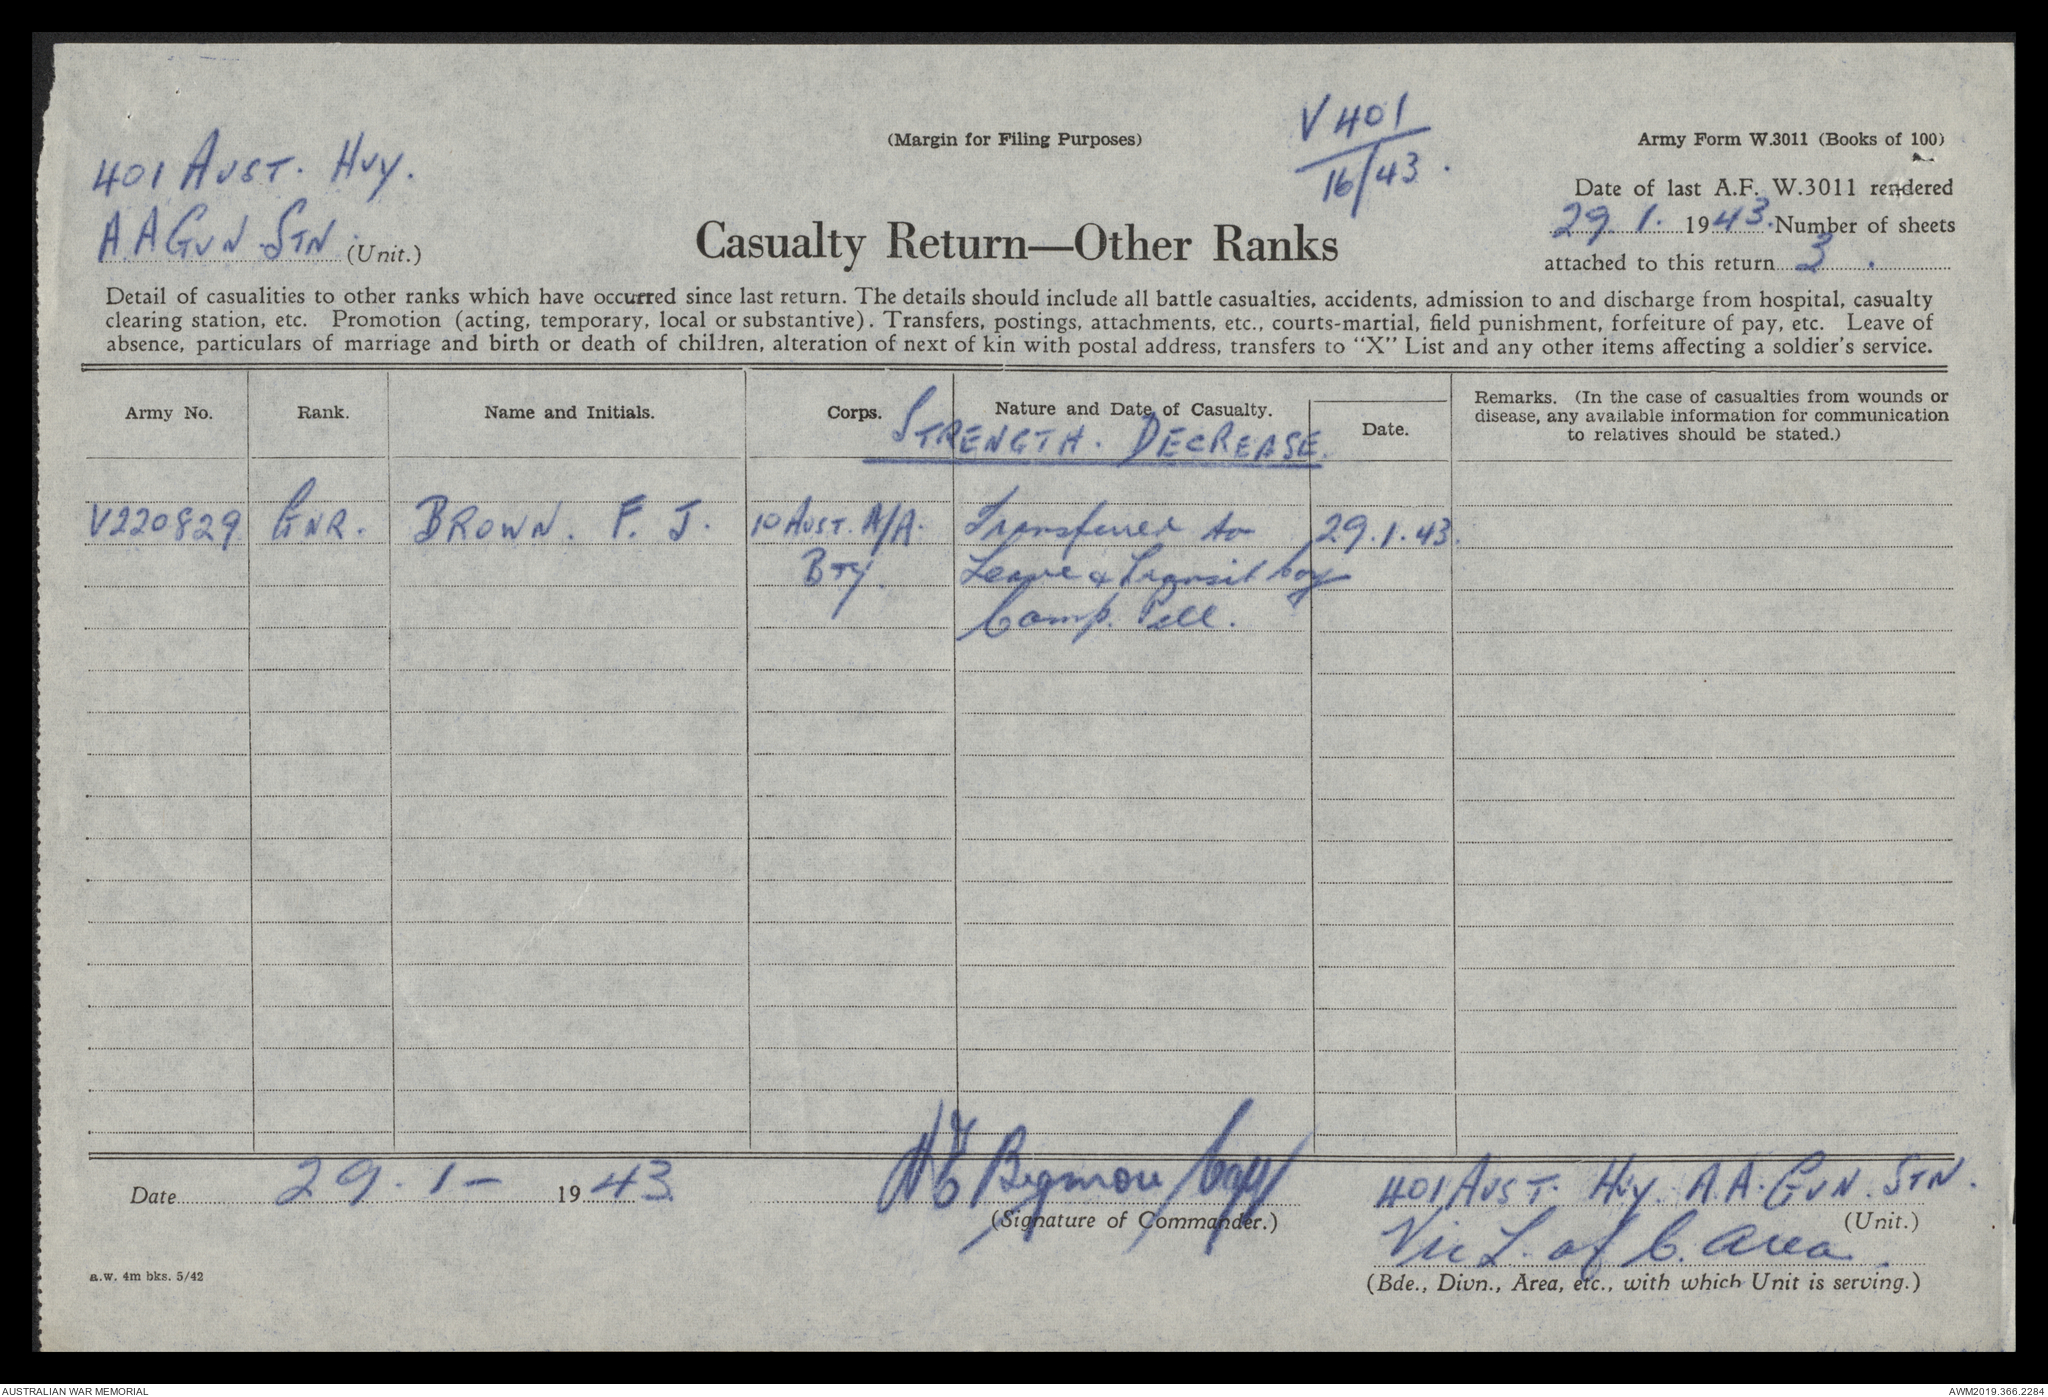 (Margin for Filing Purposes)
V 401
16/43.
Army Form W.3011 (Books of 100)
401 AUST. HVY.
A A GUN STN. (Unit.)
Casualty Return—Other Ranks
Date of last A.F. W.3011 rendered
29. 1. 1943. Number of sheets
attached to this return 3.
Detail of casualities to other ranks which have occurred since last return. The details should include all battle casualties, accidents, admission to and discharge from hospital, casualty
clearing station, etc. Promotion (acting, temporary, local or substantive). Transfers, postings, attachments, etc., courts-martial, field punishment, forfeiture of pay, etc. Leave of
absence, particulars of marriage and birth or death of children, alteration of next of kin with postal address, transfers to "X" List and any other items affecting a soldier's service.
Army No. Rank. Name and Initials. Corps. Nature and Date of Casualty. Date. Remarks. (In the case of casualties from wounds or
disease, any available information for communication
to relatives should be stated.)
STRENGTH. DECREASE.
V220829 GNR. BROWN. F. J. 10 AUST. A/A. Transferred to 29.1.43.
BTY. Leave & Transit Coy
Camp. Pell.
Date 29. 1 - 1943.
(Signature of Commander.)
401 AUST. HVY. A.A. GUN. STN.
(Unit.)
Vic L. of C. Area.
(Bde., Divn., Area, etc., with which Unit is serving.)
a.w. 4m bks. 5/42
AUSTRALIAN WAR MEMORIAL
AWM2019.366.2284